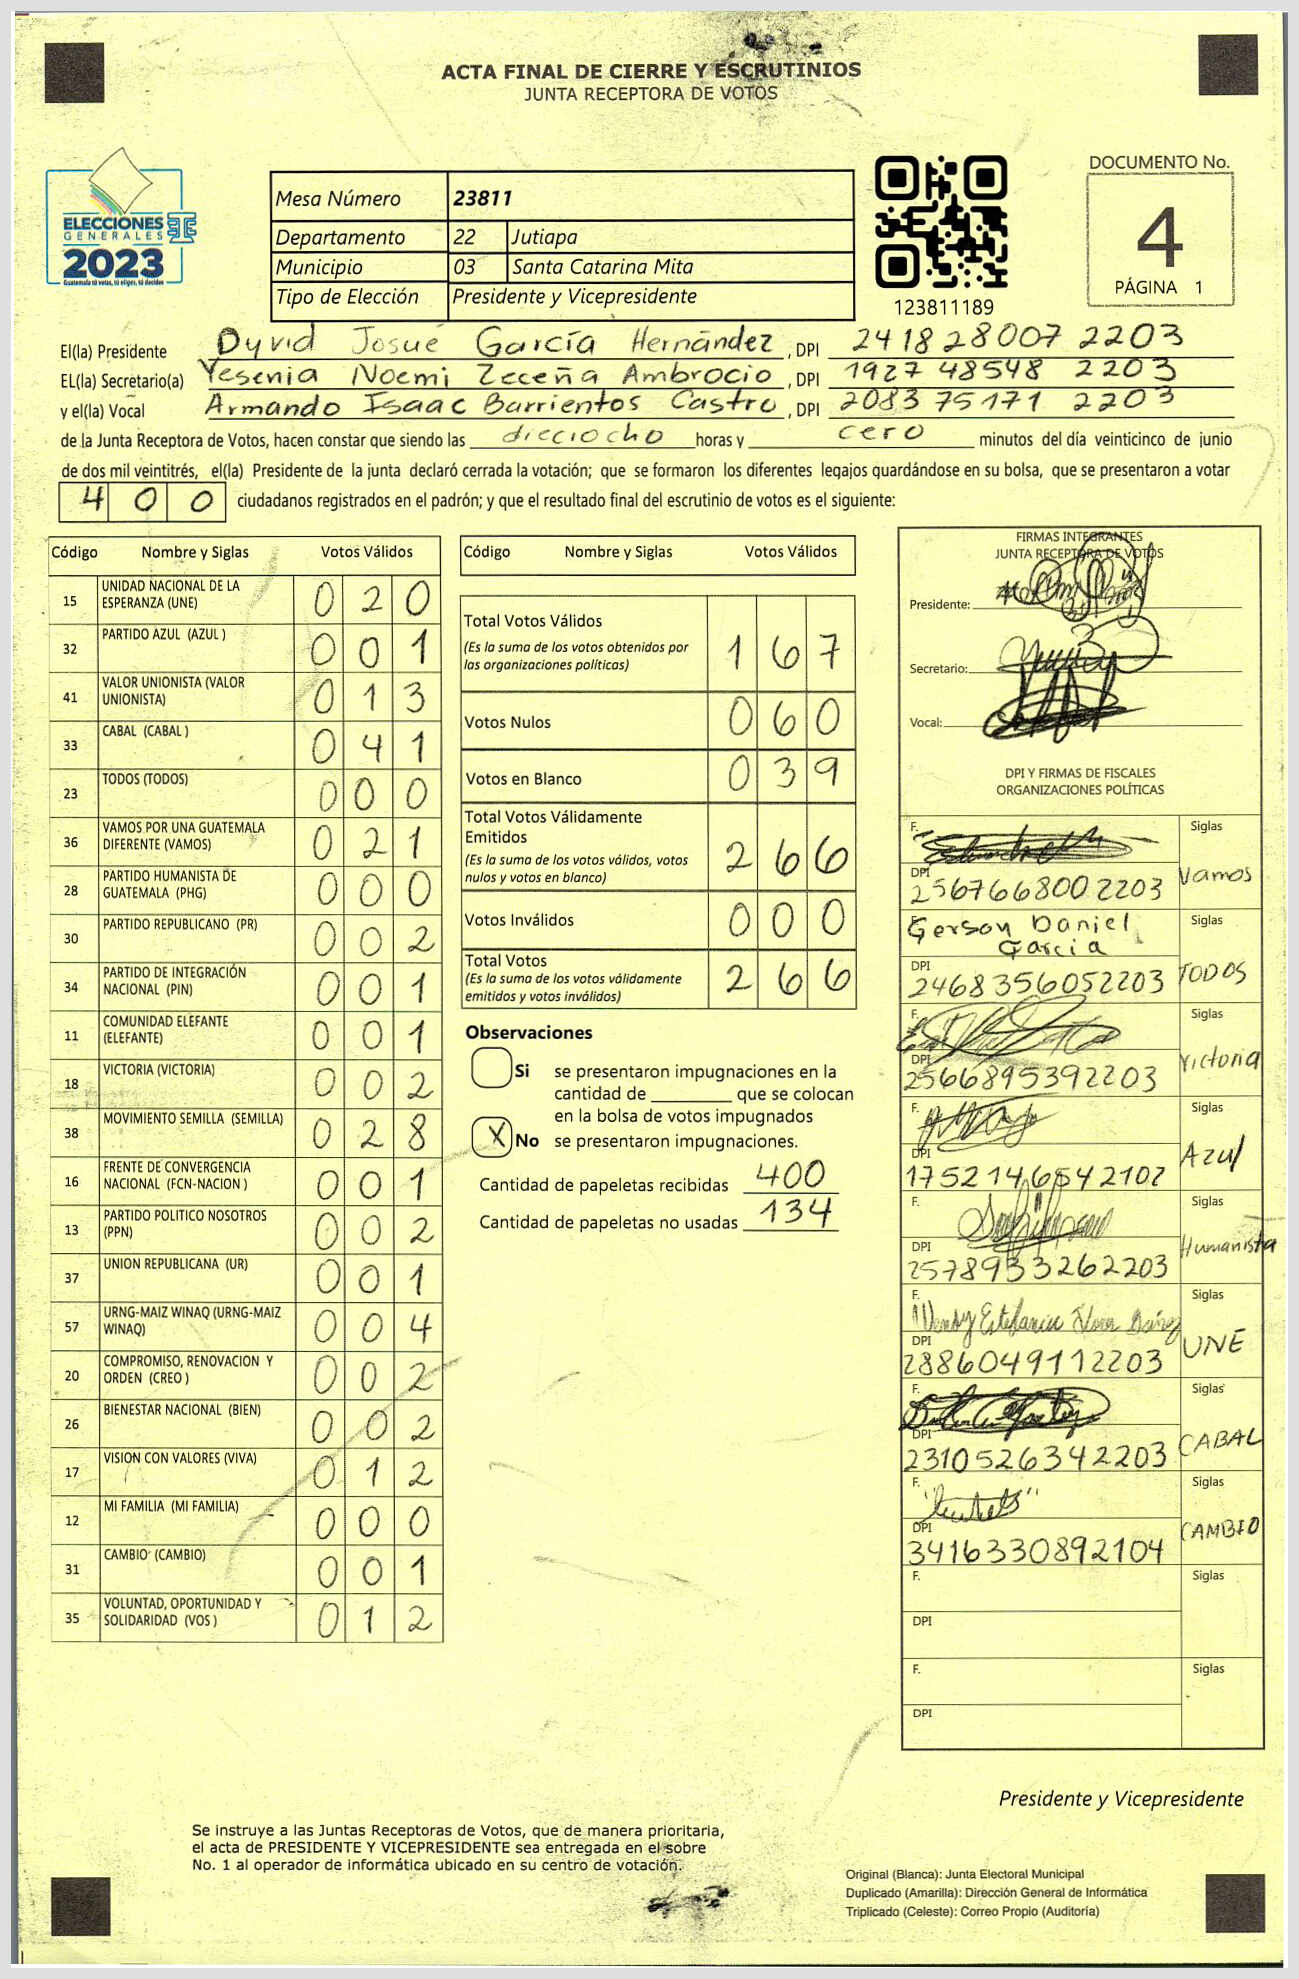 ACTA FINAL DE CIERRE Y ESCRUTINIOS
JUNTA RECEPTORA DE VOTOS
ELECCIONES
GENERALES
2023
Guatemala tú votas, tú eliges, tú decides
Mesa Número 23811
Departamento 22 Jutiapa
Municipio 03 Santa Catarina Mita
Tipo de Elección Presidente y Vicepresidente
123811189
DOCUMENTO No.
4
PÁGINA 1
El(la) Presidente Dyvid Josué García Hernández, DPI 241828007 2203
EL(la) Secretario(a) Yesenia Noemi Zeceña Ambrocio, DPI 1927 48548 2203
y el(la) Vocal Armando Isaac Barrientos Castro, DPI 2083 75171 2203
de la Junta Receptora de Votos, hacen constar que siendo las dieciocho horas y cero minutos del día veinticinco de junio
de dos mil veintitrés, el(la) Presidente de la junta declaró cerrada la votación; que se formaron los diferentes legajos guardándose en su bolsa, que se presentaron a votar
400 ciudadanos registrados en el padrón; y que el resultado final del escrutinio de votos es el siguiente:
Código Nombre y Siglas Votos Válidos
15 UNIDAD NACIONAL DE LA ESPERANZA (UNE) 020
32 PARTIDO AZUL (AZUL ) 001
41 VALOR UNIONISTA (VALOR UNIONISTA) 013
33 CABAL (CABAL ) 041
23 TODOS (TODOS) 000
36 VAMOS POR UNA GUATEMALA DIFERENTE (VAMOS) 021
28 PARTIDO HUMANISTA DE GUATEMALA (PHG) 000
30 PARTIDO REPUBLICANO (PR) 002
34 PARTIDO DE INTEGRACIÓN NACIONAL (PIN) 001
11 COMUNIDAD ELEFANTE (ELEFANTE) 001
18 VICTORIA (VICTORIA) 002
38 MOVIMIENTO SEMILLA (SEMILLA) 028
16 FRENTE DE CONVERGENCIA NACIONAL (FCN-NACION ) 001
13 PARTIDO POLITICO NOSOTROS (PPN) 002
37 UNION REPUBLICANA (UR) 001
57 URNG-MAIZ WINAQ (URNG-MAIZ WINAQ) 004
20 COMPROMISO, RENOVACION Y ORDEN (CREO ) 002
26 BIENESTAR NACIONAL (BIEN) 002
17 VISION CON VALORES (VIVA) 012
12 MI FAMILIA (MI FAMILIA) 000
31 CAMBIO (CAMBIO) 001
35 VOLUNTAD, OPORTUNIDAD Y SOLIDARIDAD (VOS ) 012
Código Nombre y Siglas Votos Válidos
Total Votos Válidos 167
(Es la suma de los votos obtenidos por
las organizaciones políticas)
Votos Nulos 060
Votos en Blanco 039
Total Votos Válidamente
Emitidos 266
(Es la suma de los votos válidos, votos
nulos y votos en blanco)
Votos Inválidos 000
Total Votos 266
(Es la suma de los votos válidamente
emitidos y votos inválidos)
Observaciones
Si se presentaron impugnaciones en la
cantidad de ________ que se colocan
en la bolsa de votos impugnados
X No se presentaron impugnaciones.
Cantidad de papeletas recibidas 400
Cantidad de papeletas no usadas 134
FIRMAS INTEGRANTES
JUNTA RECEPTORA DE VOTOS
Presidente:
Secretario:
Vocal:
DPI Y FIRMAS DE FISCALES
ORGANIZACIONES POLÍTICAS
F. Siglas
DPI 2567668002203 Vamos
Gerson Daniel Siglas
Garcia
DPI 2468356052203 TODOS
F. Siglas
DPI 2566895392203 Victoria
F. Siglas
DPI 1752146542102 Azul
F. Siglas
DPI 2578933262203 Humanista
F. Siglas
DPI 2886049112203 UNE
F. Siglas
DPI 2310526342203 CABAL
F. Siglas
DPI 3416330892104 CAMBIO
F. Siglas
DPI
F. Siglas
DPI
Presidente y Vicepresidente
Se instruye a las Juntas Receptoras de Votos, que de manera prioritaria,
el acta de PRESIDENTE Y VICEPRESIDENTE sea entregada en el sobre
No. 1 al operador de informática ubicado en su centro de votación.
Original (Blanca): Junta Electoral Municipal
Duplicado (Amarilla): Dirección General de Informática
Triplicado (Celeste): Correo Propio (Auditoría)